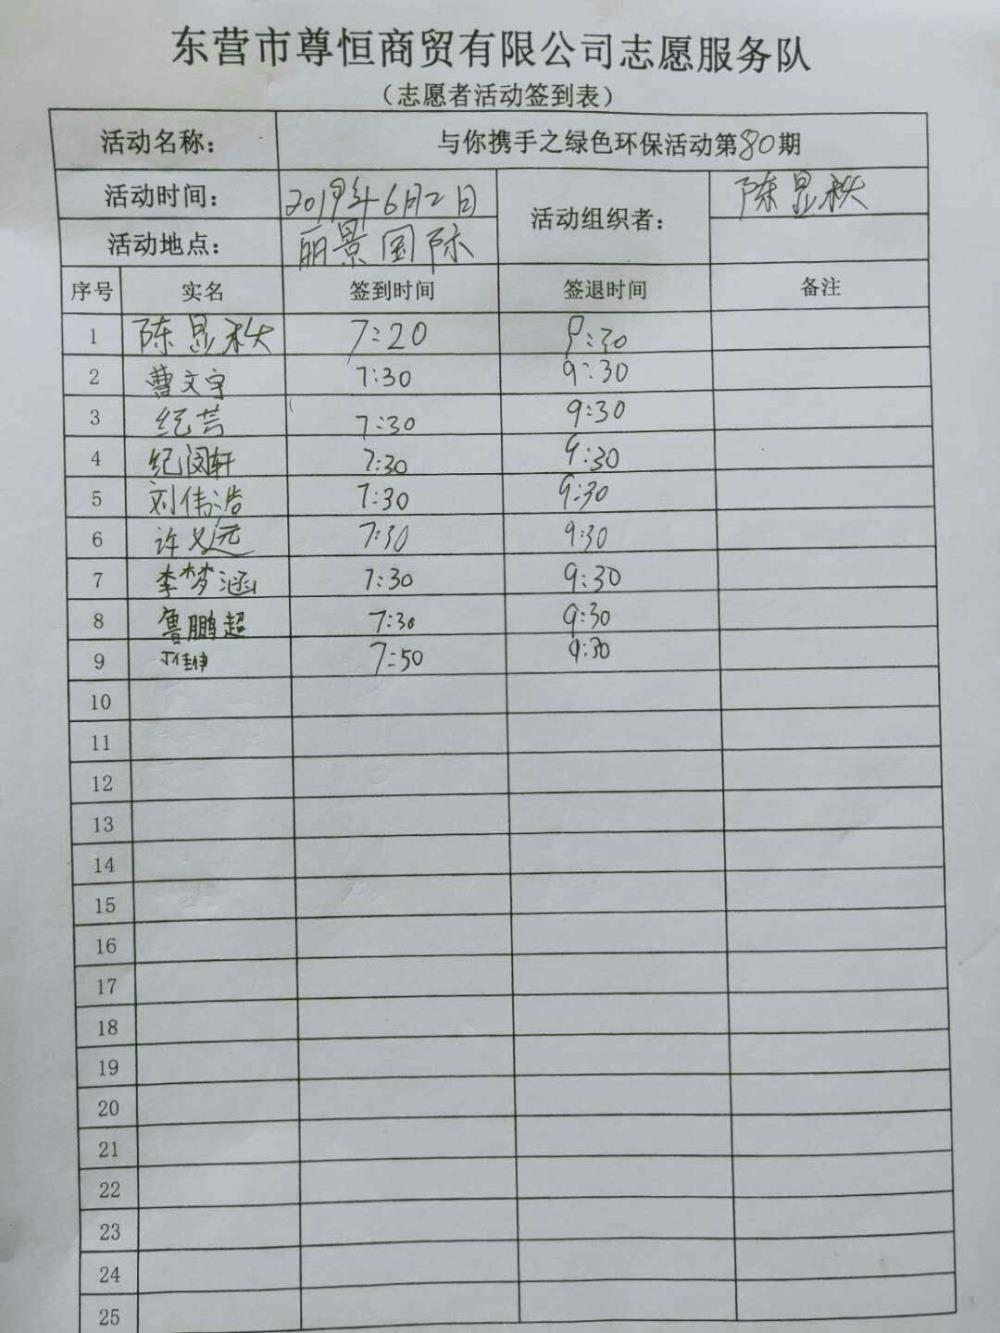 东营市尊恒商贸有限公司志愿服务队
（志愿者活动签到表）
活动名称： 与你携手之绿色环保活动第80期
活动时间： 2019年6月2日 活动组织者： 陈显秋
活动地点： 丽景国际
序号 实名 签到时间 签退时间 备注
1 陈显秋 7:20 9:30
2 曹文宇 7:30 9:30
3 纪芸 7:30 9:30
4 纪闵轩 7:30 9:30
5 刘伟浩 7:30 9:30
6 许义远 7:30 9:30
7 李梦涵 7:30 9:30
8 鲁鹏超 7:30 9:30
9 7:50 9:30
10
11
12
13
14
15
16
17
18
19
20
21
22
23
24
25